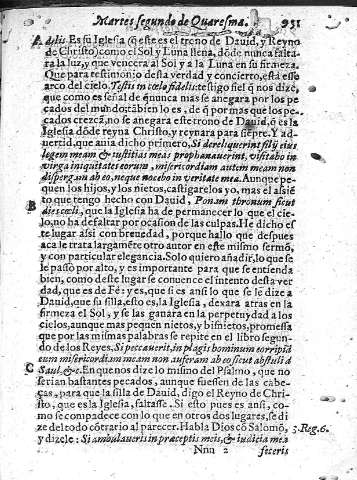 Martes segundo de Quaresma. 951
A delis. Es su Iglesia (q̃ este es el trono de Dauid, y Reyno
de Christo) como el Sol y Luna llena, dõde nunca faltara
la luz, y que vencera al Sol y a la Luna en su firmeza.
Que para testimonio desta verdad y concierto, està esse
arco del cielo. Testis in cœlo fidelis: testigo fiel q̃ nos dize,
que como es señal de q̃ nunca mas se anegara por los pecados
del mundo: tãbien lo es, de q̃ por mas que los pecados
crezcã, no se anegara este trono de Dauid, q̃ es la
Iglesia dõde reyna Christo, y reynara para siẽpre. Y aduertid,
que auia dicho primero, Si dereliquerint filij eius
legem meam & iustitias meas prophanauerint, visitabo in
virga iniquitates eorum, misericordiam autem meam non
dispergam ab eo, neque nocebo in veritate mea. Aunque pequen
los hijos, y los nietos, castigarelos yo, mas el assiẽto
que tengo hecho con Dauid, Ponam thronum sicut
B dies cœli, que la Iglesia ha de permanecer lo que el cielo,
no ha de faltar por ocasion de las culpas. He dicho este
lugar assi con breuedad, porque hallo que despues
aca le trata largamẽte otro autor en este mismo sermõ,
y con particular elegancia. Solo quiero añadir, lo que se
le passò por alto, y es importante para que se entienda
bien, como deste lugar se conuence el intento desta verdad,
que es de Fè: y es, que si es ansi lo que se le dize a
Dauid, que su silla, esto es, la Iglesia, dexara atras en la
firmeza el Sol, y se las ganara en la perpetuydad a los
cielos, aunque mas pequen nietos, y bisnietos, promessa
que por las mismas palabras se repite en el libro segundo
de los Reyes. Si peccauerit, in plagis hominum corripiã
eum misericordiam meam non auferam ab eo sicut abstuli à
C Saul, &c. En que nos dize lo mismo del Psalmo, que no
serian bastantes pecados, aunque fuessen de las cabeças,
para que la silla de Dauid, digo el Reyno de Christo,
que es la Iglesia, faltasse. Si esto pues es ansi, como
se compadece con lo que en otros dos lugares, se dize
del todo cõtrario al parecer. Habla Dios cõ Salomõ, 3. Reg. 6.
y dizele: Si ambulaueris in præceptis meis, & iudicia mea
Nnn 2 feceris